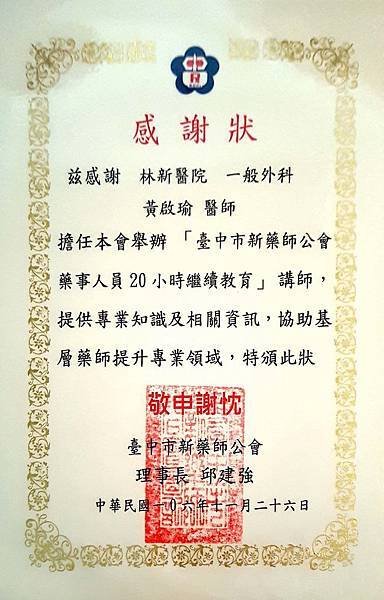 感謝狀
茲感謝 林新醫院 一般外科
黃啟瑜 醫師
擔任本會舉辦「臺中市新藥師公會
藥事人員20小時繼續教育」講師，
提供專業知識及相關資訊，協助基
層藥師提升專業領域，特頒此狀
敬申謝忱
臺中市新藥師公會
理事長 邱建強
中華民國一０六年十一月二十六日